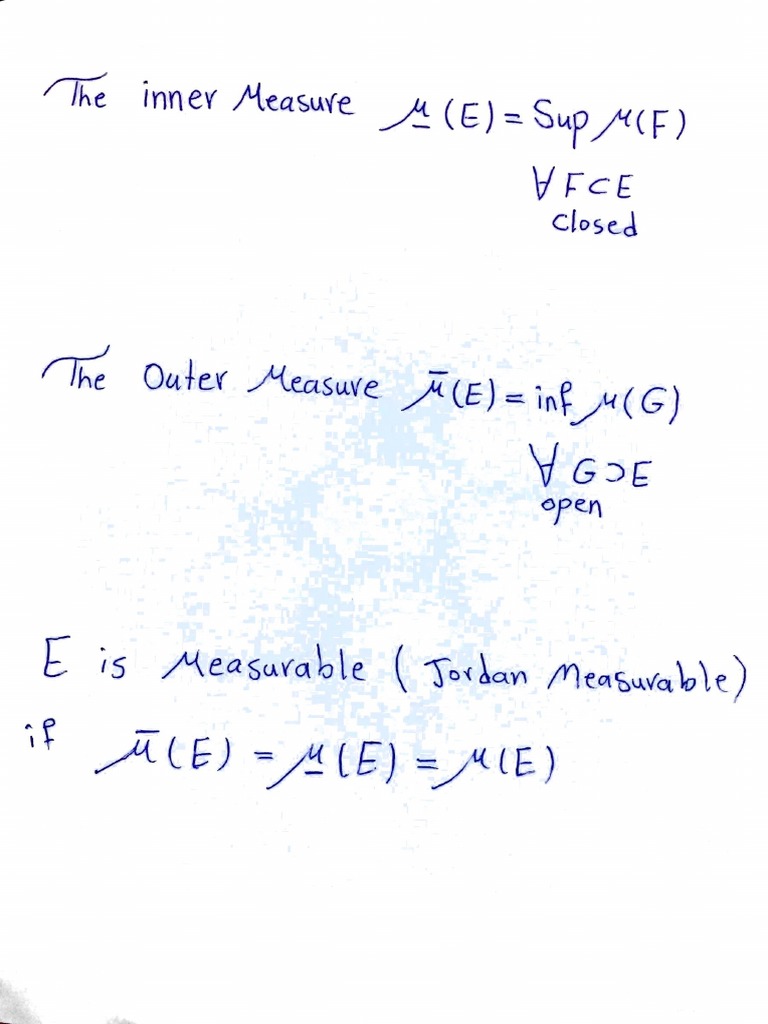 The inner Measure μ̲(E) = Sup μ(F)
∀ F⊂E
closed
The Outer Measure μ̄(E) = inf μ(G)
∀ G⊃E
open
E is Measurable ( Jordan Measurable)
if μ̄(E) = μ̲(E) = μ(E)